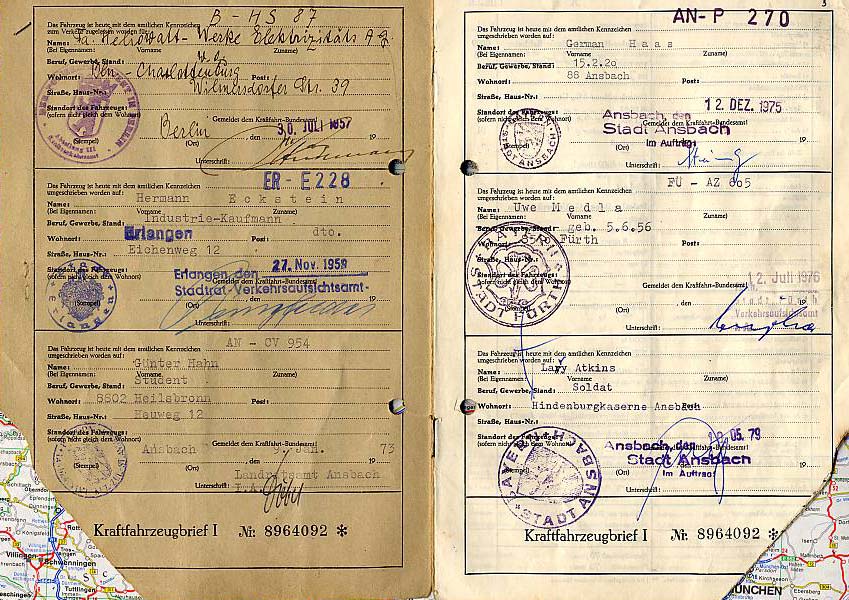 B - HS 87
Das Fahrzeug ist heute mit dem amtlichen Kennzeichen
zum Verkehr zugelassen worden für:
Name: Fa. Heliowatt-Werke Elektrizitäts A.G.
(Bei Eigennamen: Vorname Zuname)
Beruf, Gewerbe, Stand:
Wohnort: Bln-Charlottenburg Post:
Straße, Haus-Nr.: Wilmersdorfer Str. 39
Standort des Fahrzeugs:
(sofern nicht gleich dem Wohnort)
Gemeldet dem Kraftfahrt-Bundesamt!
Berlin, den 30. JULI 1957 19
(Stempel) (Ort)
Unterschrift:
ER - E 228
Das Fahrzeug ist heute mit dem amtlichen Kennzeichen
umgeschrieben worden auf:
Name: Hermann Eckstein
(Bei Eigennamen: Vorname Zuname)
Beruf, Gewerbe, Stand: Industrie-Kaufmann
Wohnort: Erlangen Post: dto.
Straße, Haus-Nr.: Eichenweg 12
Standort des Fahrzeugs:
(sofern nicht gleich dem Wohnort)
27. Nov. 1959
Erlangen, den
Gemeldet dem Kraftfahrt-Bundesamt!
Stadtrat Verkehrsaufsichtsamt-
(Stempel) (Ort)
Unterschrift:
AN - CV 954
Das Fahrzeug ist heute mit dem amtlichen Kennzeichen
umgeschrieben worden auf:
Name: Günter Hahn
(Bei Eigennamen: Vorname Zuname)
Beruf, Gewerbe, Stand: Student
Wohnort: 8802 Heilsbronn Post:
Straße, Haus-Nr.: Hauweg 12
Standort des Fahrzeugs:
(sofern nicht gleich dem Wohnort)
Gemeldet dem Kraftfahrt-Bundesamt!
Ansbach, den 9. Jan. 19 73
(Stempel) (Ort)
Landratsamt Ansbach
Unterschrift: I.A.
Kraftfahrzeugbrief I Nr. 8964092 *
3
AN-P 270
Das Fahrzeug ist heute mit dem amtlichen Kennzeichen
umgeschrieben worden auf:
Name: German Haas
(Bei Eigennamen: Vorname Zuname)
Beruf, Gewerbe, Stand: 15.2.20
Wohnort: 88 Ansbach Post:
Straße, Haus-Nr.:
Standort des Fahrzeugs:
(sofern nicht gleich dem Wohnort)
12. DEZ. 1975
Ansbach, den
Gemeldet dem Kraftfahrt-Bundesamt!
Stadt Ansbach
(Stempel) (Ort)
Im Auftrag:
Unterschrift:
FÜ - AZ 665
Das Fahrzeug ist heute mit dem amtlichen Kennzeichen
umgeschrieben worden auf:
Name: Uwe Medla
(Bei Eigennamen: Vorname Zuname)
Beruf, Gewerbe, Stand: geb. 5.6.56
Wohnort: 8510 Fürth Post:
Straße, Haus-Nr.:
Standort des Fahrzeugs:
(sofern nicht gleich dem Wohnort)
12. Juli 1976
Gemeldet dem Kraftfahrt-Bundesamt!
, den 19
(Stempel) (Ort)
Verkehrsaufsichtsamt
Unterschrift:
Das Fahrzeug ist heute mit dem amtlichen Kennzeichen
umgeschrieben worden auf:
Name: Lary Atkins
(Bei Eigennamen: Vorname Zuname)
Beruf, Gewerbe, Stand: Soldat
Wohnort: Hindenburgkaserne Ansbach
Straße, Haus-Nr.:
Standort des Fahrzeugs:
(sofern nicht gleich dem Wohnort)
05. 79
Ansbach, den
Gemeldet dem Kraftfahrt-Bundesamt!
Stadt Ansbach
(Stempel) (Ort)
Im Auftrag
Unterschrift:
BAYERN
STADT ANSBACH
Kraftfahrzeugbrief I Nr. 8964092 *
Villingen
Schwenningen
Tuttlingen
MÜNCHEN
Ebersberg